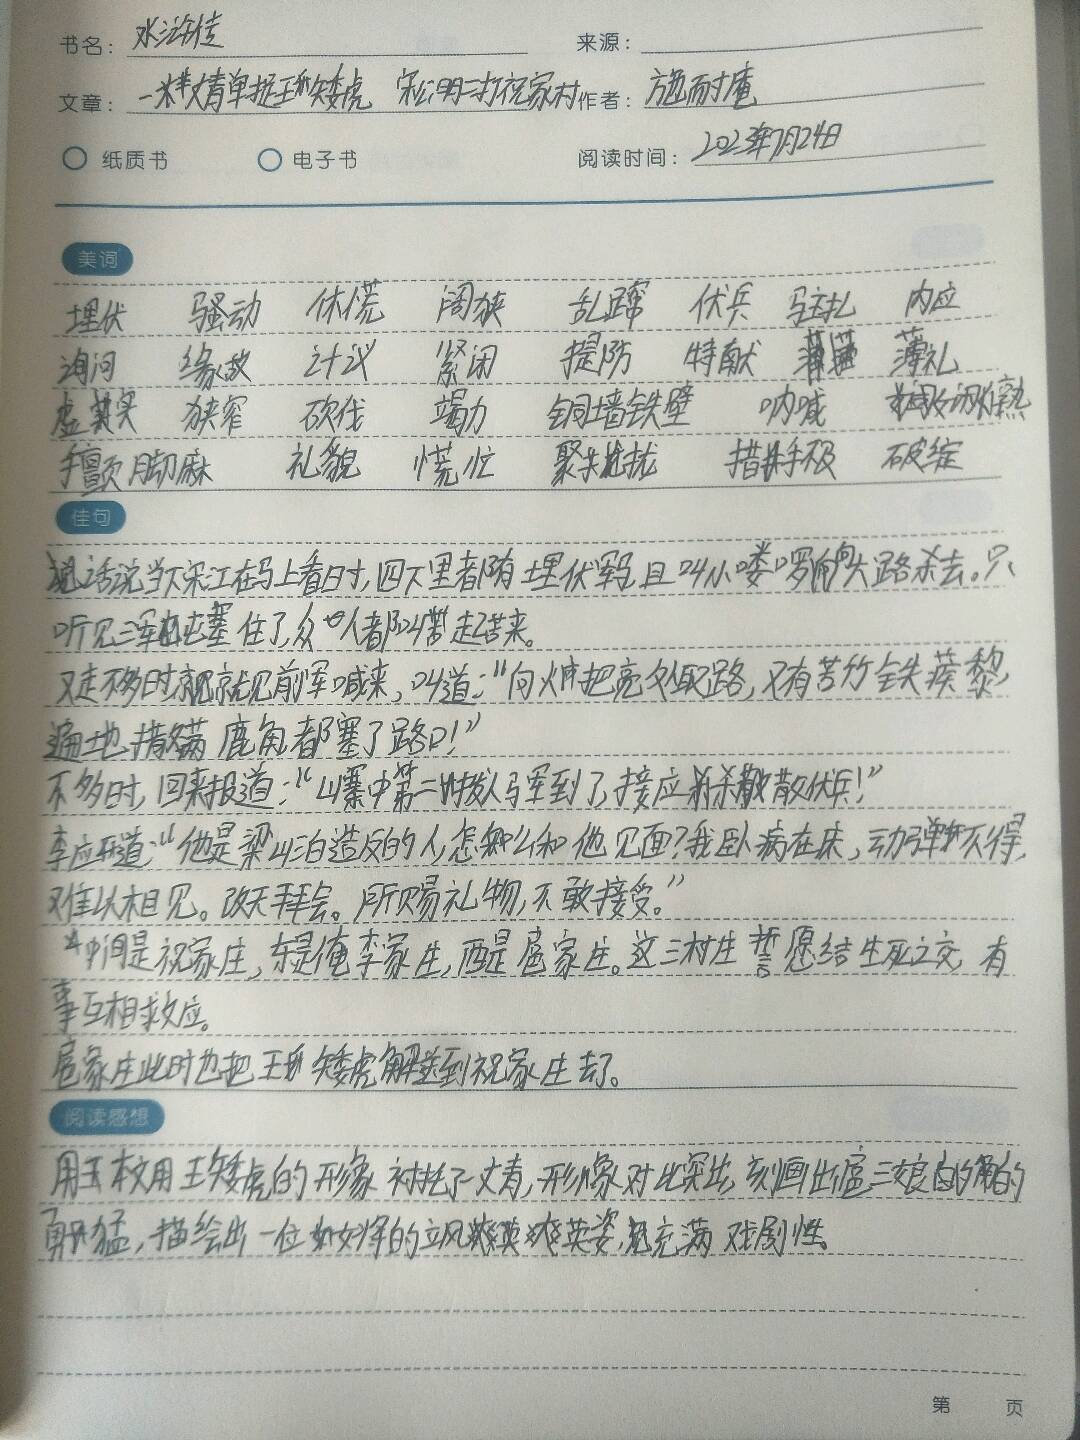 书名： 水浒传 来源：
文章： 一丈青单捉王矮虎 宋公明二打祝家村 作者： 施耐庵
纸质书 电子书 阅读时间： 2023年7月24日
美词
埋伏 骚动 休慌 阔狭 乱蹿 伏兵 驻扎 内应
询问 缘故 计议 紧闭 提防 特献 薄礼
虚实 狭窄 砍伐 竭力 铜墙铁壁 呐喊
手颤脚麻 礼貌 慌忙 措手不及 破绽
佳句
话说当下宋江在马上看时，四下里都有埋伏军马，且叫小喽啰向大路杀去。只
听见三军屯塞住了，众人都叫起苦来。
又走不多时，就见前军喊来，叫道：“向火把亮处取路，又有苦竹铁蒺黎
遍地撒满鹿角都塞了路口！”
不多时，回来报道：“山寨中第二拨人马军到了，接应杀散伏兵！”
李应道：“他是梁山泊造反的人，怎么和他见面？我卧病在床，动弹不得，
难以相见。改天拜会。所赐礼物，不敢接受。”
中间是祝家庄，东是俺李家庄，西是扈家庄。这三村庄誓愿结生死之交，有
事互相救应。
扈家庄此时也把王矮虎解送到祝家庄去了。
阅读感想
本文用王矮虎的形象衬托了一丈青，形象对比突出，刻画出扈三娘的
勇猛，描绘出一位女将的英姿，充满戏剧性。
第 页